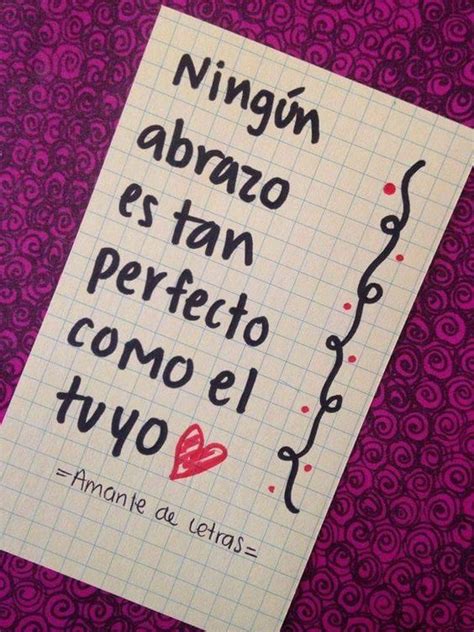 Ningún
abrazo
es tan
perfecto
como el
tuyo
=Amante de Letras=